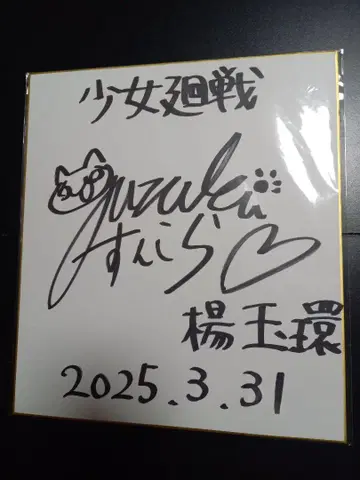 少女廻戦
Yuzuki
すんこら
楊玉環
2025.3.31